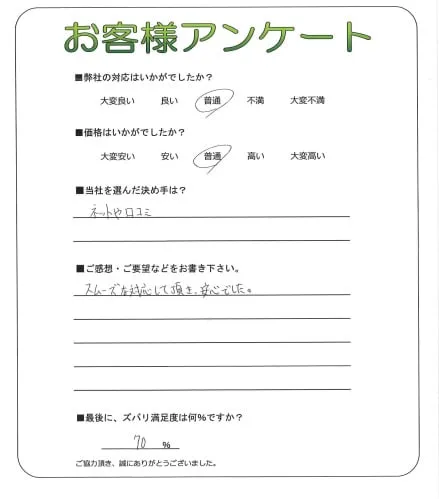 お客様アンケート
■弊社の対応はいかがでしたか？
大変良い 良い 普通 不満 大変不満
■価格はいかがでしたか？
大変安い 安い 普通 高い 大変高い
■当社を選んだ決め手は？
ネットや口コミ
■ご感想・ご要望などをお書き下さい。
スムーズな対応して頂き、安心でした。
■最後に、ズバリ満足度は何%ですか？
70 %
ご協力頂き、誠にありがとうございました。